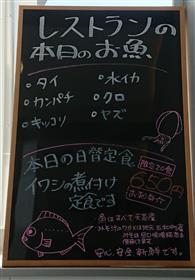 レストランの
本日のお魚
・タイ ・水イカ
・カンパチ ・クロ
・キッコリ ・ヤズ
本日の日替定食
限定20食
イワシの煮付け
650円
定食です
・魚はすべて天然
安心、安全、新鮮です。